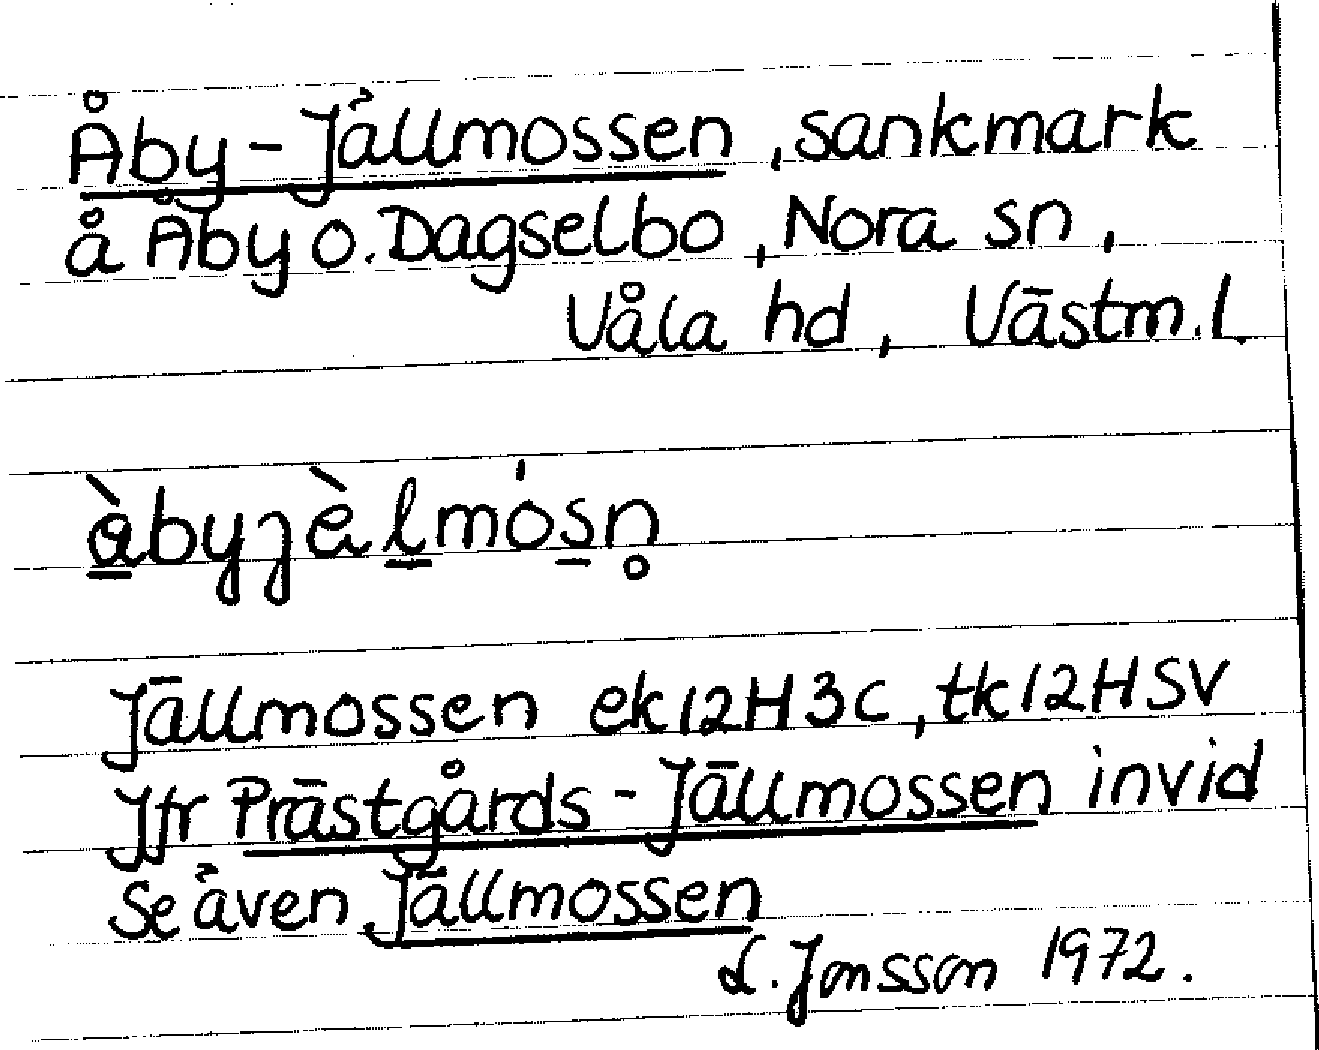 Åby-Jällmossen, sankmark
å Åby o. Dagselbo, Nora sn,
Våla hd, Västm. l.
àbyjæ̀lmósn̥
Jällmossen ek12H3c, tk12HSV
Jfr Prästgårds-Jällmossen invid
Se även Jällmossen
L. Jonsson 1972.